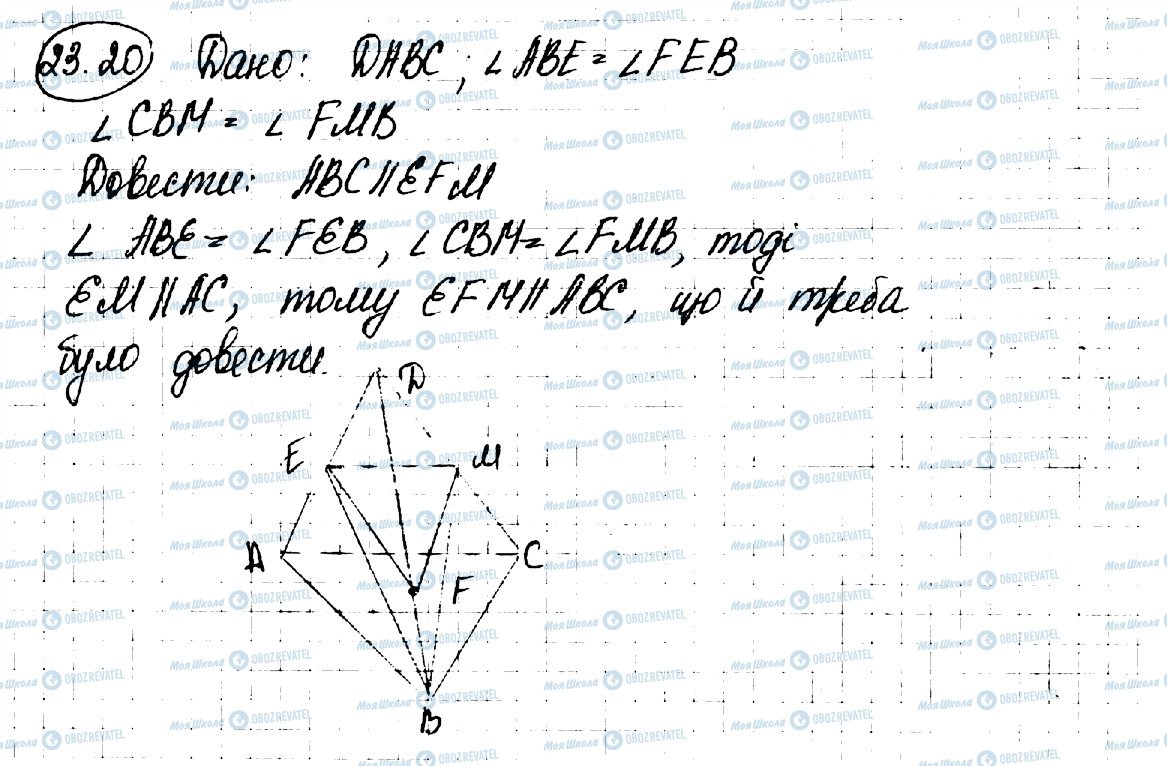 23.20 Дано: DABC, ∠ABE = ∠FEB
∠CBM = ∠FMB
Довести: ABC || EFM
∠ABE = ∠FEB, ∠CBM = ∠FMB, тоді
EM || AC, тому EFM || ABC, що й треба
було довести.
D
E M
A C
F
B
МояШкола OBOZREVATEL